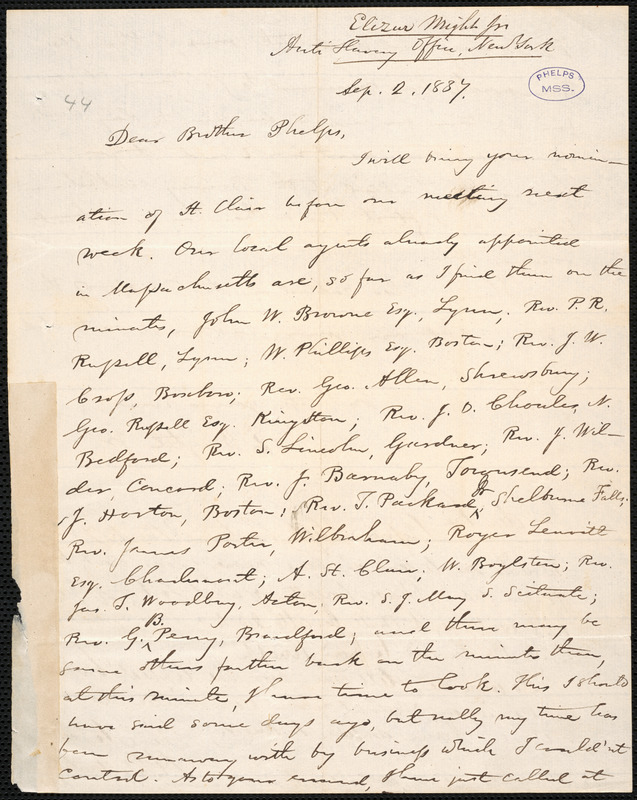 Elizur Wright Jr
Anti Slavery Office, New York
Sep. 2, 1837.
PHELPS
MSS.
44
Dear Brother Phelps,
I will bring your nomin-
ation of St. Clair before our meeting next
week. Our local agents already appointed
in Massachusetts are, so far as I find them on the
minutes, John W. Browne Esq., Lynn; Rev. P. R.
Russell, Lynn; W. Phillips Esq. Boston; Rev. J. W.
Cross, Boxboro; Rev. Geo. Allen, Shrewsbury;
Geo. Russell Esq. Kingston; Rev. J. O. Choules, N.
Bedford; Rev. S. Lincoln, Gardner; Rev. J. Wil-
der, Concord; Rev. J. Barnaby, Townsend; Rev.
J. Horton, Boston; Rev. T. Packard Jr, Shelburne Falls;
Rev. James Porter, Wilbraham; Roger Leavitt
Esq. Charlemont; A. St. Clair, W. Boylston; Rev.
Jas. T. Woodbury, Acton, Rev. S. J. May S. Scituate;
Rev. G. B. Perry, Bradford; and there may be
some others farther back on the minutes than,
at this minute, I have time to look. This I should
have said some days ago, but really my time has
been runaway with by business which I could'nt
control. As to your errand, I have just called at